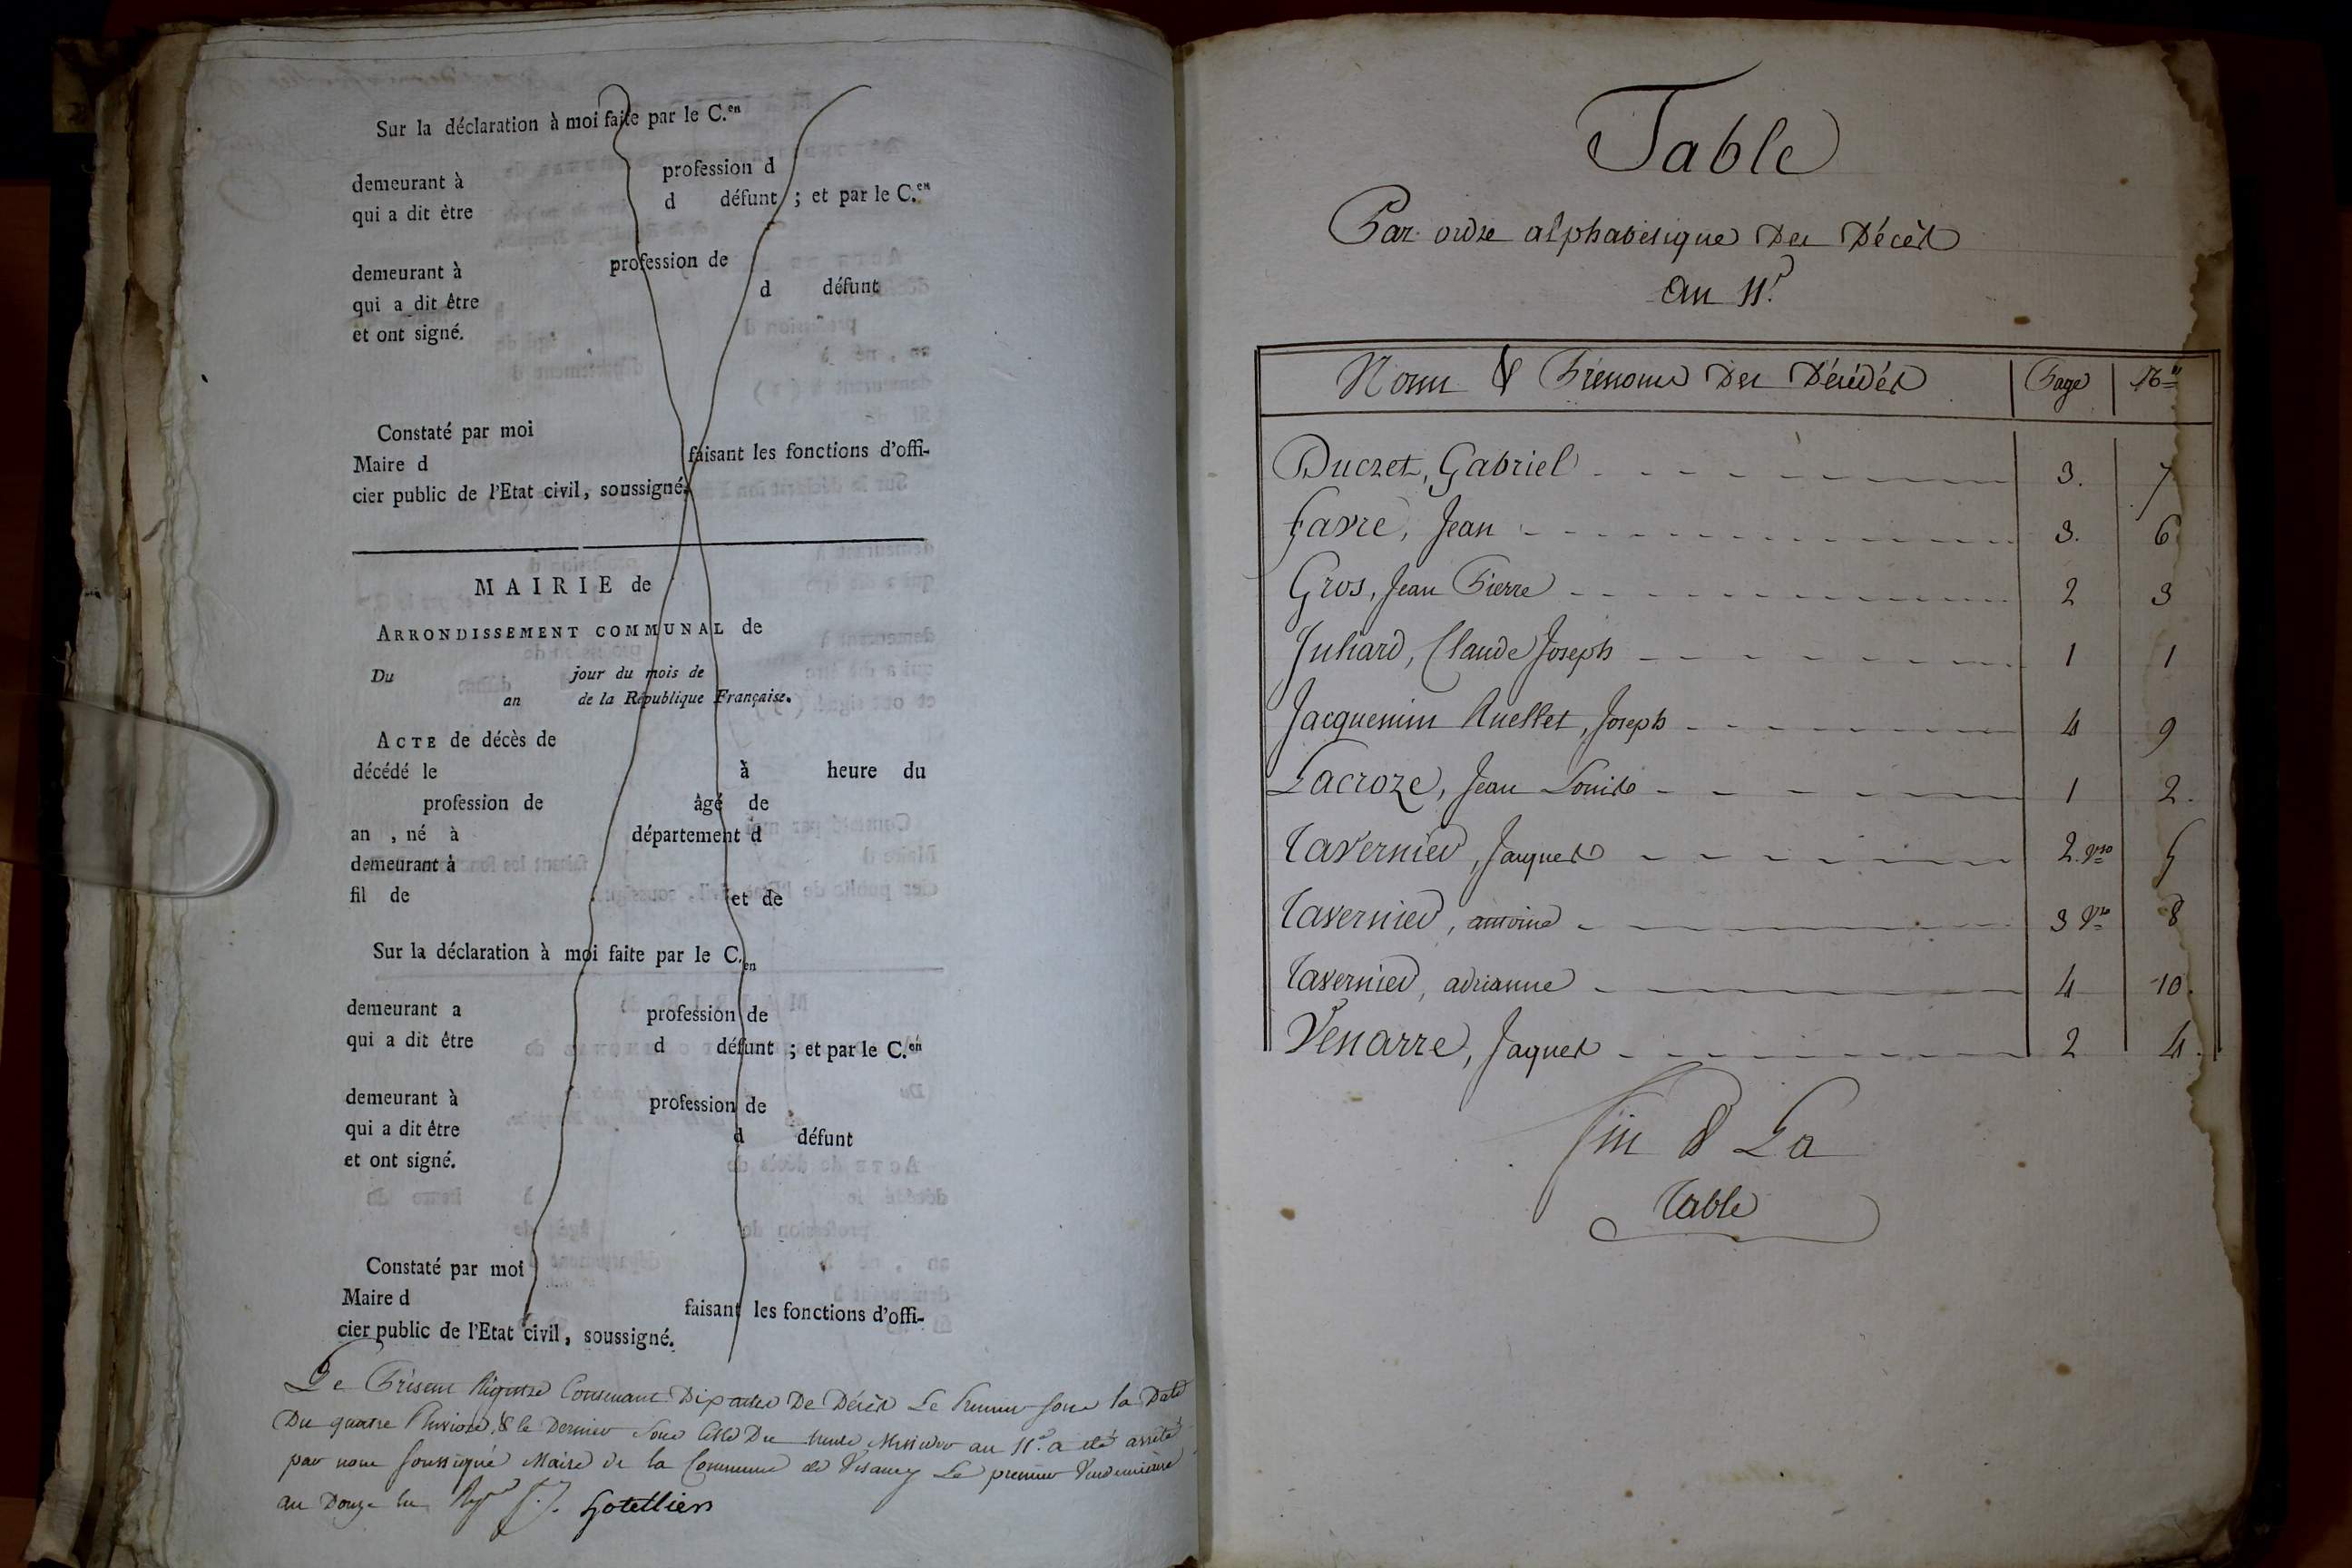 Sur la déclaration à moi faite par le C.en
demeurant à profession d
qui a dit être d défunt ; et par le C.en
demeurant à profession de
qui a dit être d défunt
et ont signé.
Constaté par moi
Maire d faisant les fonctions d'offi-
cier public de l'Etat civil, soussigné.
MAIRIE de
ARRONDISSEMENT COMMUNAL de
Du jour du mois de
an de la République Française.
ACTE de décès de
décédé le à heure du
profession de âgé de
an , né à département d
demeurant à
fil de et de
Sur la déclaration à moi faite par le C.en
demeurant a profession de
qui a dit être d défunt ; et par le C.en
demeurant à profession de
qui a dit être d défunt
et ont signé.
Constaté par moi
Maire d faisant les fonctions d'offi-
cier public de l'Etat civil, soussigné.
Le Présent Registre Contenant Dix actes De Décès Le Premier sous la Date
Du quatre Pluviose, & le Dernier sous celle Du trente Messidor an 11.e a été arrêté
par nous soussigné Maire de la Commune de le premier Vendemiaire
an Douze
Table
Par ordre alphabetique Des Décès
An 11.e
Noms & Prenoms Des Décédés Page N.os
Ducret, Gabriel 3. 7
Favre, Jean 3. 6
Gros, Jean Pierre 2 3
Juliard, Claude Joseph 1 1
Jacquemin Ruellet, Joseph 4 9
Lacroze, Jean Louis 1 2.
Tavernier, Jaques 2. vso 5
Tavernier, antoine 3 Vso 8
Tavernier, adrianne 4 10.
Venarre, Jaques 2 4.
Fin de La
Table